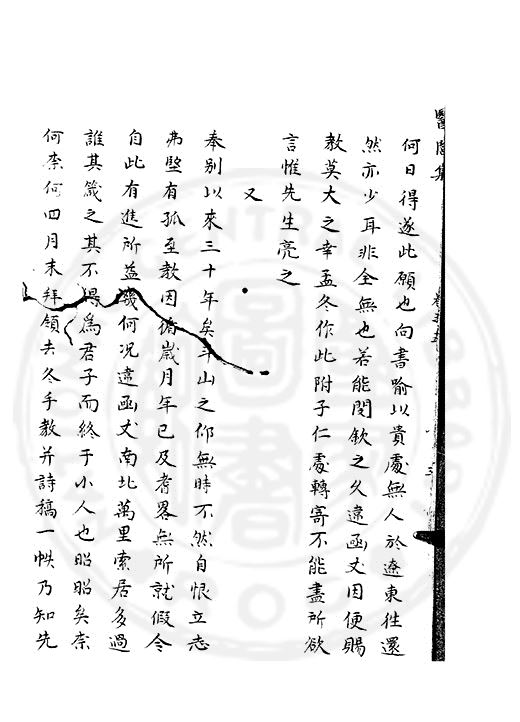 醫閭集
何日得遂此願也向書喻以貴處無人於遼東往還
然亦少耳非全無也若能閔欽之久違函丈因便賜
教莫大之幸孟冬作此附子仁處轉寄不能盡所欲
言惟先生亮之
又
奉別以來三十年矣斗山之仰無時不然自恨立志
弗堅有孤至教因循歲月年已及耆畧無所就假令
自此有進所益幾何况違函丈南北萬里索居多過
誰其箴之其不得為君子而終于小人也昭昭矣柰
何柰何四月末拜領去冬手教并詩稿一帙乃知先